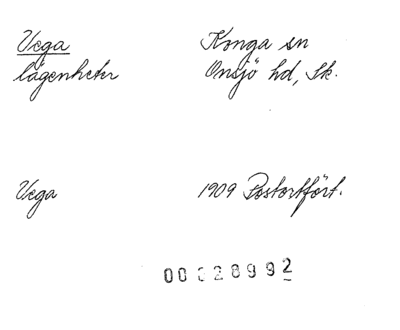 Vega Konga sn
lägenheter Onsjö hd, Sk.
Vega 1909 Postortfört.